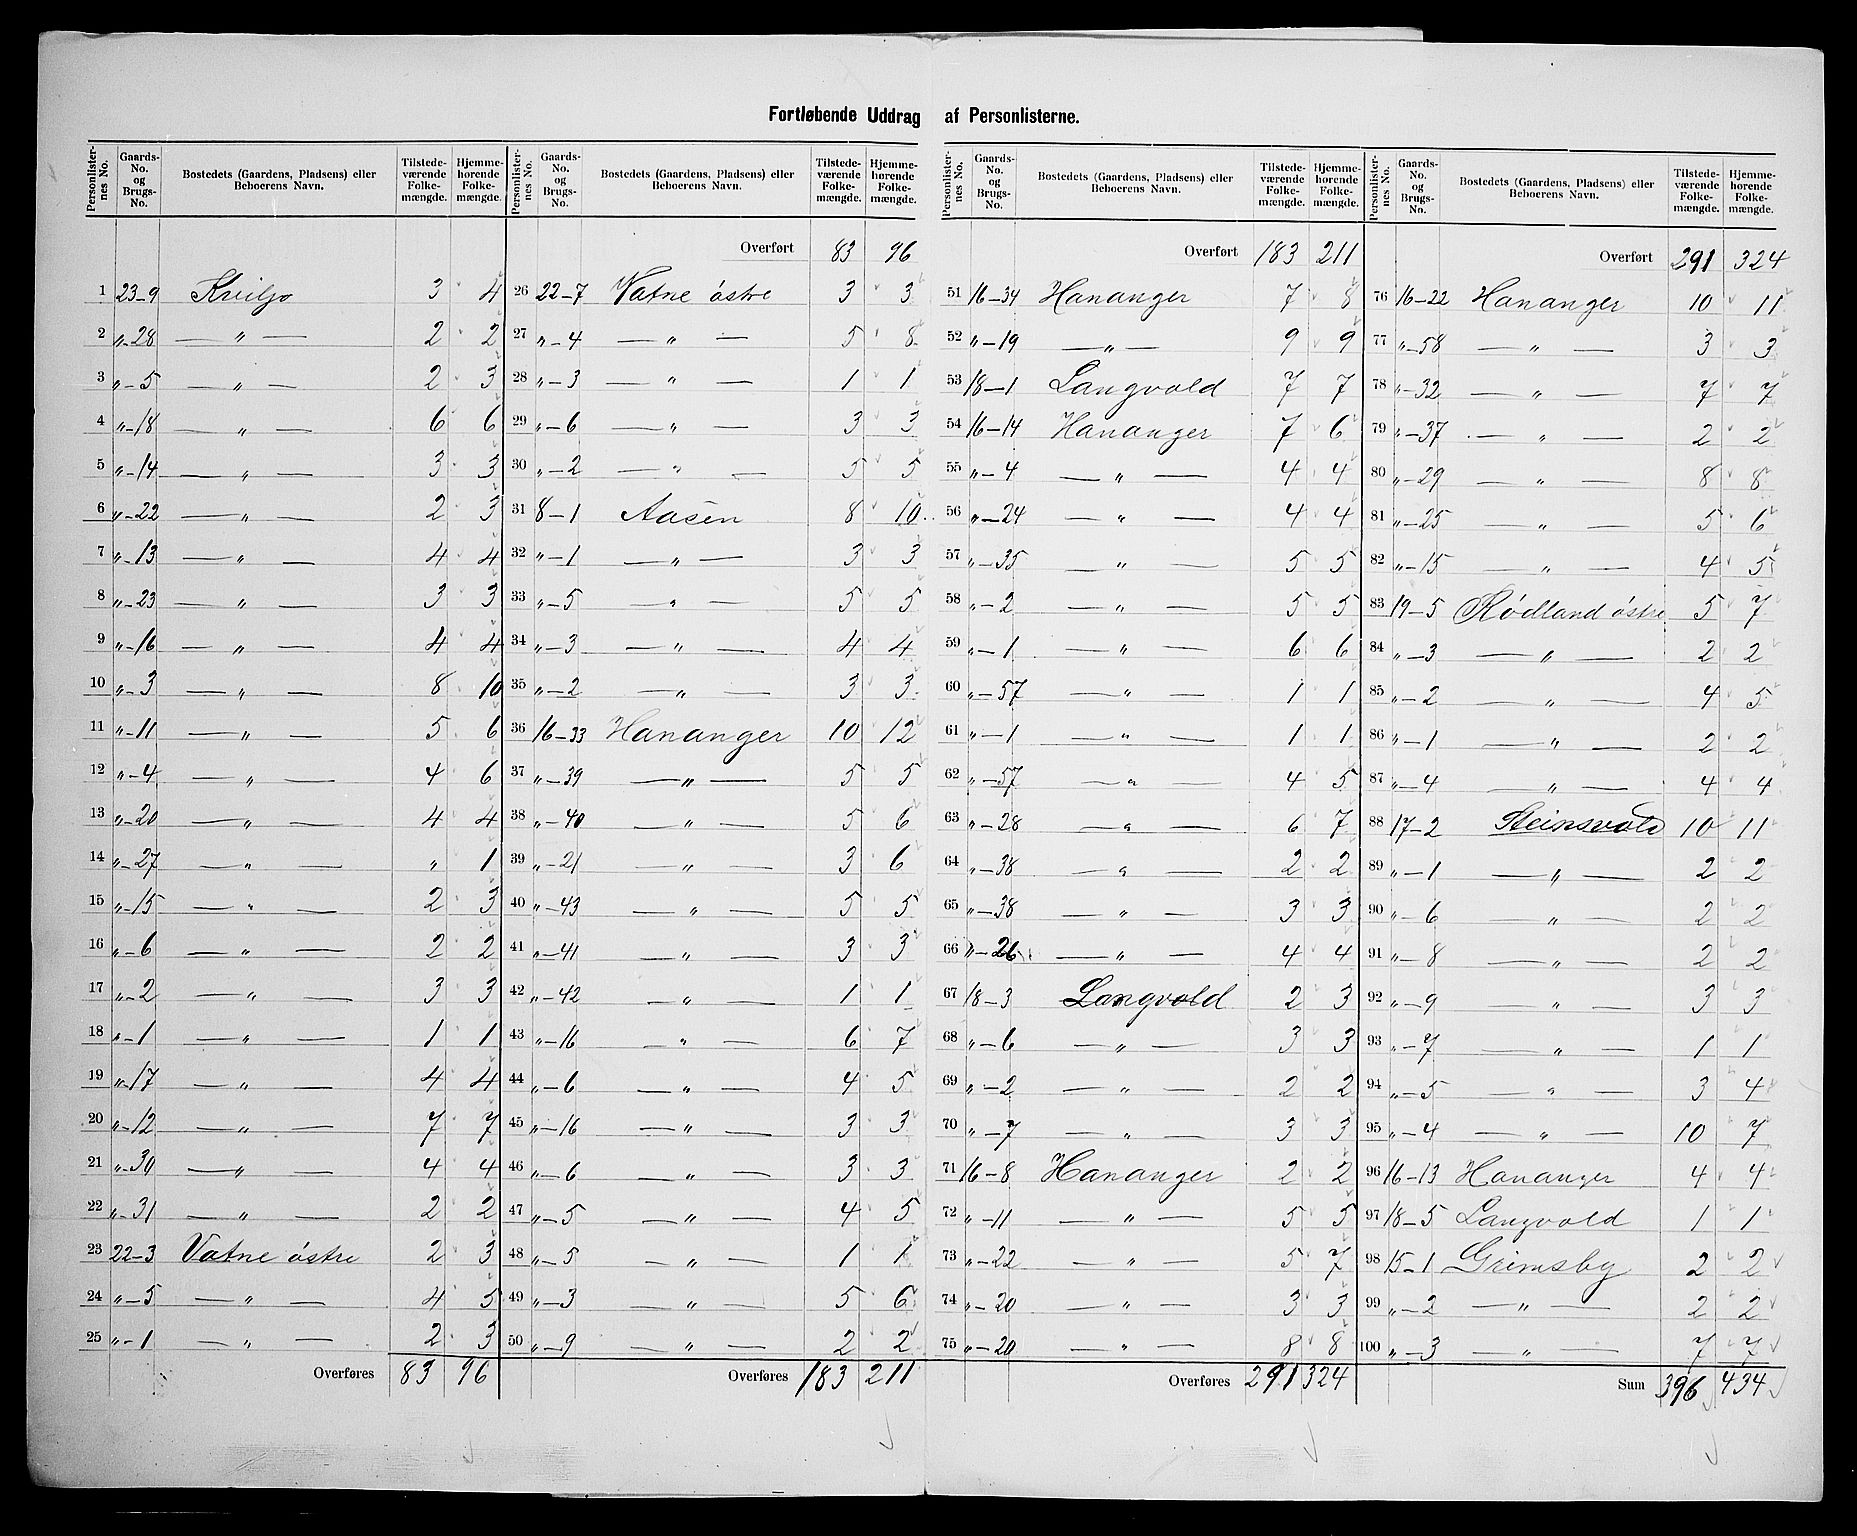 Fortløbende Uddrag af Personlisterne.
Personlister-nes No. | Gaards-No. og Brugs-No. | Bostedets (Gaardens, Pladsens) eller Beboerens Navn. | Tilstede-værende Folke-mængde. | Hjemme-hørende Folke-mængde.
1 23-9 Kviljo 3 4
2 „-28 — „ — 2 2
3 „-5 — „ — 2 3
4 „-18 — „ — 6 6
5 „-14 — „ — 3 3
6 „-22 — „ — 2 3
7 „-13 — „ — 4 4
8 „-23 — „ — 3 3
9 „-16 — „ — 4 4
10 „-3 — „ — 8 10
11 „-11 — „ — 5 6
12 „-4 — „ — 4 6
13 „-20 — „ — 4 4
14 „-27 — „ — „ 1
15 „-15 — „ — 2 3
16 „-6 — „ — 2 2
17 „-2 — „ — 3 3
18 „-1 — „ — 1 1
19 „-17 — „ — 4 4
20 „-12 — „ — 7 7
21 „-30 — „ — 4 4
22 „-31 — „ — 2 2
23 22-3 Vatne østre 2 3
24 „-5 — „ — 4 5
25 „-1 — „ — 2 3
Overføres 83 96
Personlister-nes No. | Gaards-No. og Brugs-No. | Bostedets (Gaardens, Pladsens) eller Beboerens Navn. | Tilstede-værende Folke-mængde. | Hjemme-hørende Folke-mængde.
Overført 83 96
26 22-7 Vatne østre 3 3
27 „-4 — „ — 5 8
28 „-3 — „ — 1 1
29 „-6 — „ — 3 3
30 „-2 — „ — 5 5
31 8-1 Aasen 8 10
32 „-1 — „ — 3 3
33 „-5 — „ — 5 5
34 „-3 — „ — 4 4
35 „-2 — „ — 3 3
36 16-33 Hananger 10 12
37 „-39 — „ — 5 5
38 „-40 — „ — 5 6
39 „-21 — „ — 3 6
40 „-43 — „ — 5 5
41 „-41 — „ — 3 3
42 „-42 — „ — 1 1
43 „-16 — „ — 6 7
44 „-6 — „ — 4 5
45 „-16 — „ — 3 3
46 „-6 — „ — 3 3
47 „-5 — „ — 4 5
48 „-5 — „ — 1 1
49 „-3 — „ — 5 6
50 „-9 — „ — 2 2
Overføres 183 211
Personlister-nes No. | Gaards-No. og Brugs-No. | Bostedets (Gaardens, Pladsens) eller Beboerens Navn. | Tilstede-værende Folke-mængde. | Hjemme-hørende Folke-mængde.
Overført 183 211
51 16-34 Hananger 7 8
52 „-19 — „ — 9 9
53 18-1 Langvold 7 7
54 16-14 Hananger 7 6
55 „-4 — „ — 4 4
56 „-24 — „ — 4 4
57 „-35 — „ — 5 5
58 „-2 — „ — 5 5
59 „-1 — „ — 6 6
60 „-57 — „ — 1 1
61 „-1 — „ — 1 1
62 „-57 — „ — 4 5
63 „-28 — „ — 6 7
64 „-38 — „ — 2 2
65 „-38 — „ — 3 3
66 „-26 — „ — 4 4
67 18-3 Langvold 2 3
68 „-6 — „ — 3 3
69 „-2 — „ — 2 2
70 „-7 — „ — 3 3
71 16-8 Hananger 2 2
72 „-11 — „ — 5 5
73 „-22 — „ — 5 7
74 „-20 — „ — 3 3
75 „-20 — „ — 8 8
Overføres 291 324
Personlister-nes No. | Gaards-No. og Brugs-No. | Bostedets (Gaardens, Pladsens) eller Beboerens Navn. | Tilstede-værende Folke-mængde. | Hjemme-hørende Folke-mængde.
Overført 291 324
76 16-22 Hananger 10 11
77 „-58 — „ — 3 3
78 „-32 — „ — 7 7
79 „-37 — „ — 2 2
80 „-29 — „ — 8 8
81 „-25 — „ — 5 6
82 „-15 — „ — 4 5
83 19-5 Rødland østre 5 7
84 „-3 — „ — 2 2
85 „-2 — „ — 4 5
86 „-1 — „ — 2 2
87 „-4 — „ — 4 4
88 17-2 Steinsvold 10 11
89 „-1 — „ — 2 2
90 „-6 — „ — 2 2
91 „-8 — „ — 2 2
92 „-9 — „ — 3 3
93 „-7 — „ — 1 1
94 „-5 — „ — 3 4
95 „-4 — „ — 10 7
96 16-13 Hananger 4 4
97 18-5 Langvold 1 1
98 15-1 Grimsby 2 2
99 „-2 — „ — 2 2
100 „-3 — „ — 7 7
Sum 396 434